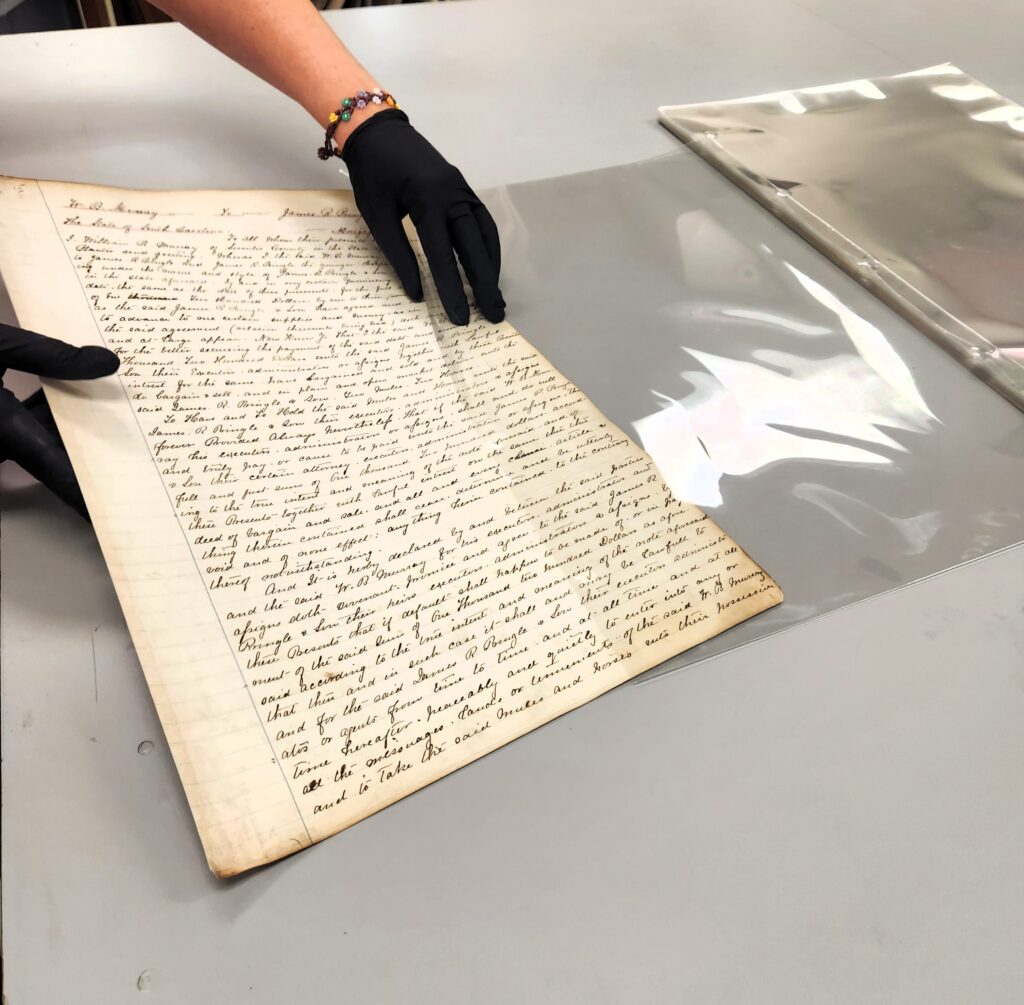 W. B. Murray To James R Prin
The State of South Carolina
I. William B. Murray of Sumter County in the State
Send Greeting Whereas I the said W. B. Murray
to James R Pringle and James R. Pringle the younger
under the name and style of James R Pringle & Son
in the State aforesaid
date the same as the date of these presents for the
of One thousand Two Hundred Dollars by me to them
as the said James R Pringle & Son have agreed
to advance to me certain supplies and money as in
the said agreement
and at Large appear. Now Know Ye That I the said
for the better securing the payment of the said debt
Thousand Two Hundred Dollars unto the said
& Son their Executors. administrators or assigns Together with Lawful
interest for the same have bargained and sold & by these
do bargain & sell. and in plain and open market deliver unto the
said James R. Pringle & Son Two Mules Two Horses
To Have and To Hold the said Mules and Horses unto the said
James. R Pringle & Son their executors administrators & assigns
forever Provided Always Nevertheless That if the said W. B.
ray his executors. administrators or assigns shall and do well
and truly pay. or cause to be paid unto the said James R Pringle
& Son their certain attorney executors. administrators or assigns the
full and just sum of One Thousand Two Hundred dollars
ing to the true intent and meaning of the note
these Presents together with Lawful interest on the same then this
deed of bargain and sale. and all and every clause article &
thing therein contained shall cease. determine and be utterly
void and of none effect: anything herein contained to the contrary
thereof notwithstanding.
And It is hereby declared by and between the said parties
and the said W. B Murray for his executors administrators and
assigns doth covenant. promise and agree. to the said James R.
Pringle & Son their heirs executors. administrators & assigns. by
these Presents that if default shall happen to be made of or in pay
ment of the said Sum of One Thousand two hundred Dollars as afore
said according to the true intent and meaning of the note aforesaid
that then and in such case it shall and may be Lawful to
and for the said James R Pringle & Son their executors administr
ators or agents from time to time. and at all time and at all
time hereafter. peaceably and quietly to enter into any or
all the messuages. Lands or tenements of the said W. B Murray
and to Take the said Mules and Horses into their possession